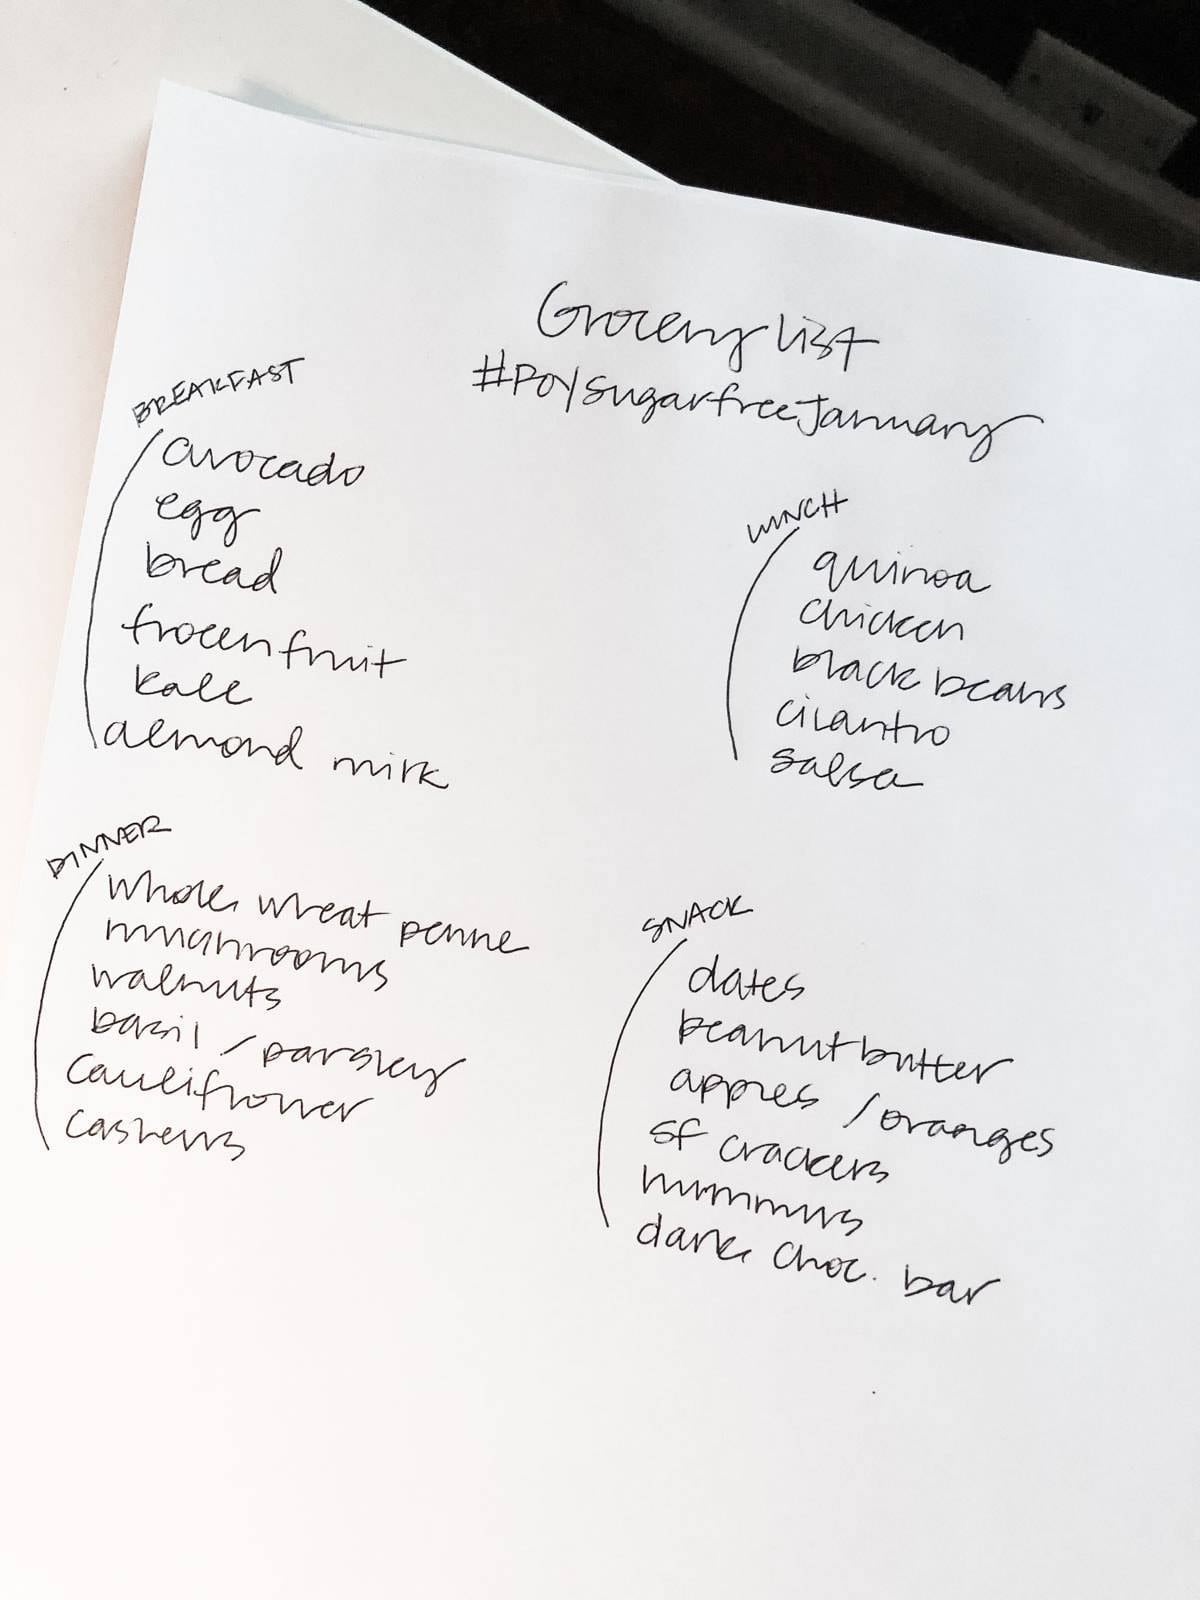 Grocery list
#PoysugarfreeJanuary
BREAKFAST
avocado
egg
bread
frozen fruit
kale
almond milk
LUNCH
quinoa
chicken
black beans
cilantro
salsa
DINNER
whole wheat penne
mushrooms
walnuts
basil / parsley
cauliflower
cashews
SNACK
dates
peanut butter
apples / oranges
sf crackers
hummus
dark choc. bar